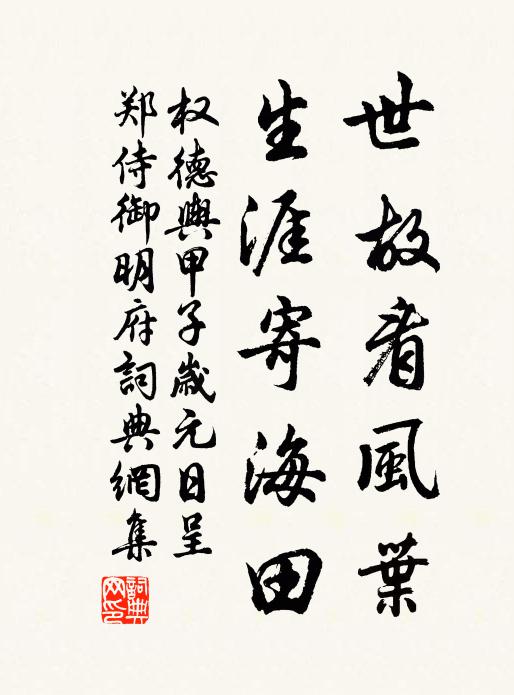 世故看風葉
生涯寄海田
权德輿甲子歲元日呈
郑侍御明府詞典網集
詞典网印